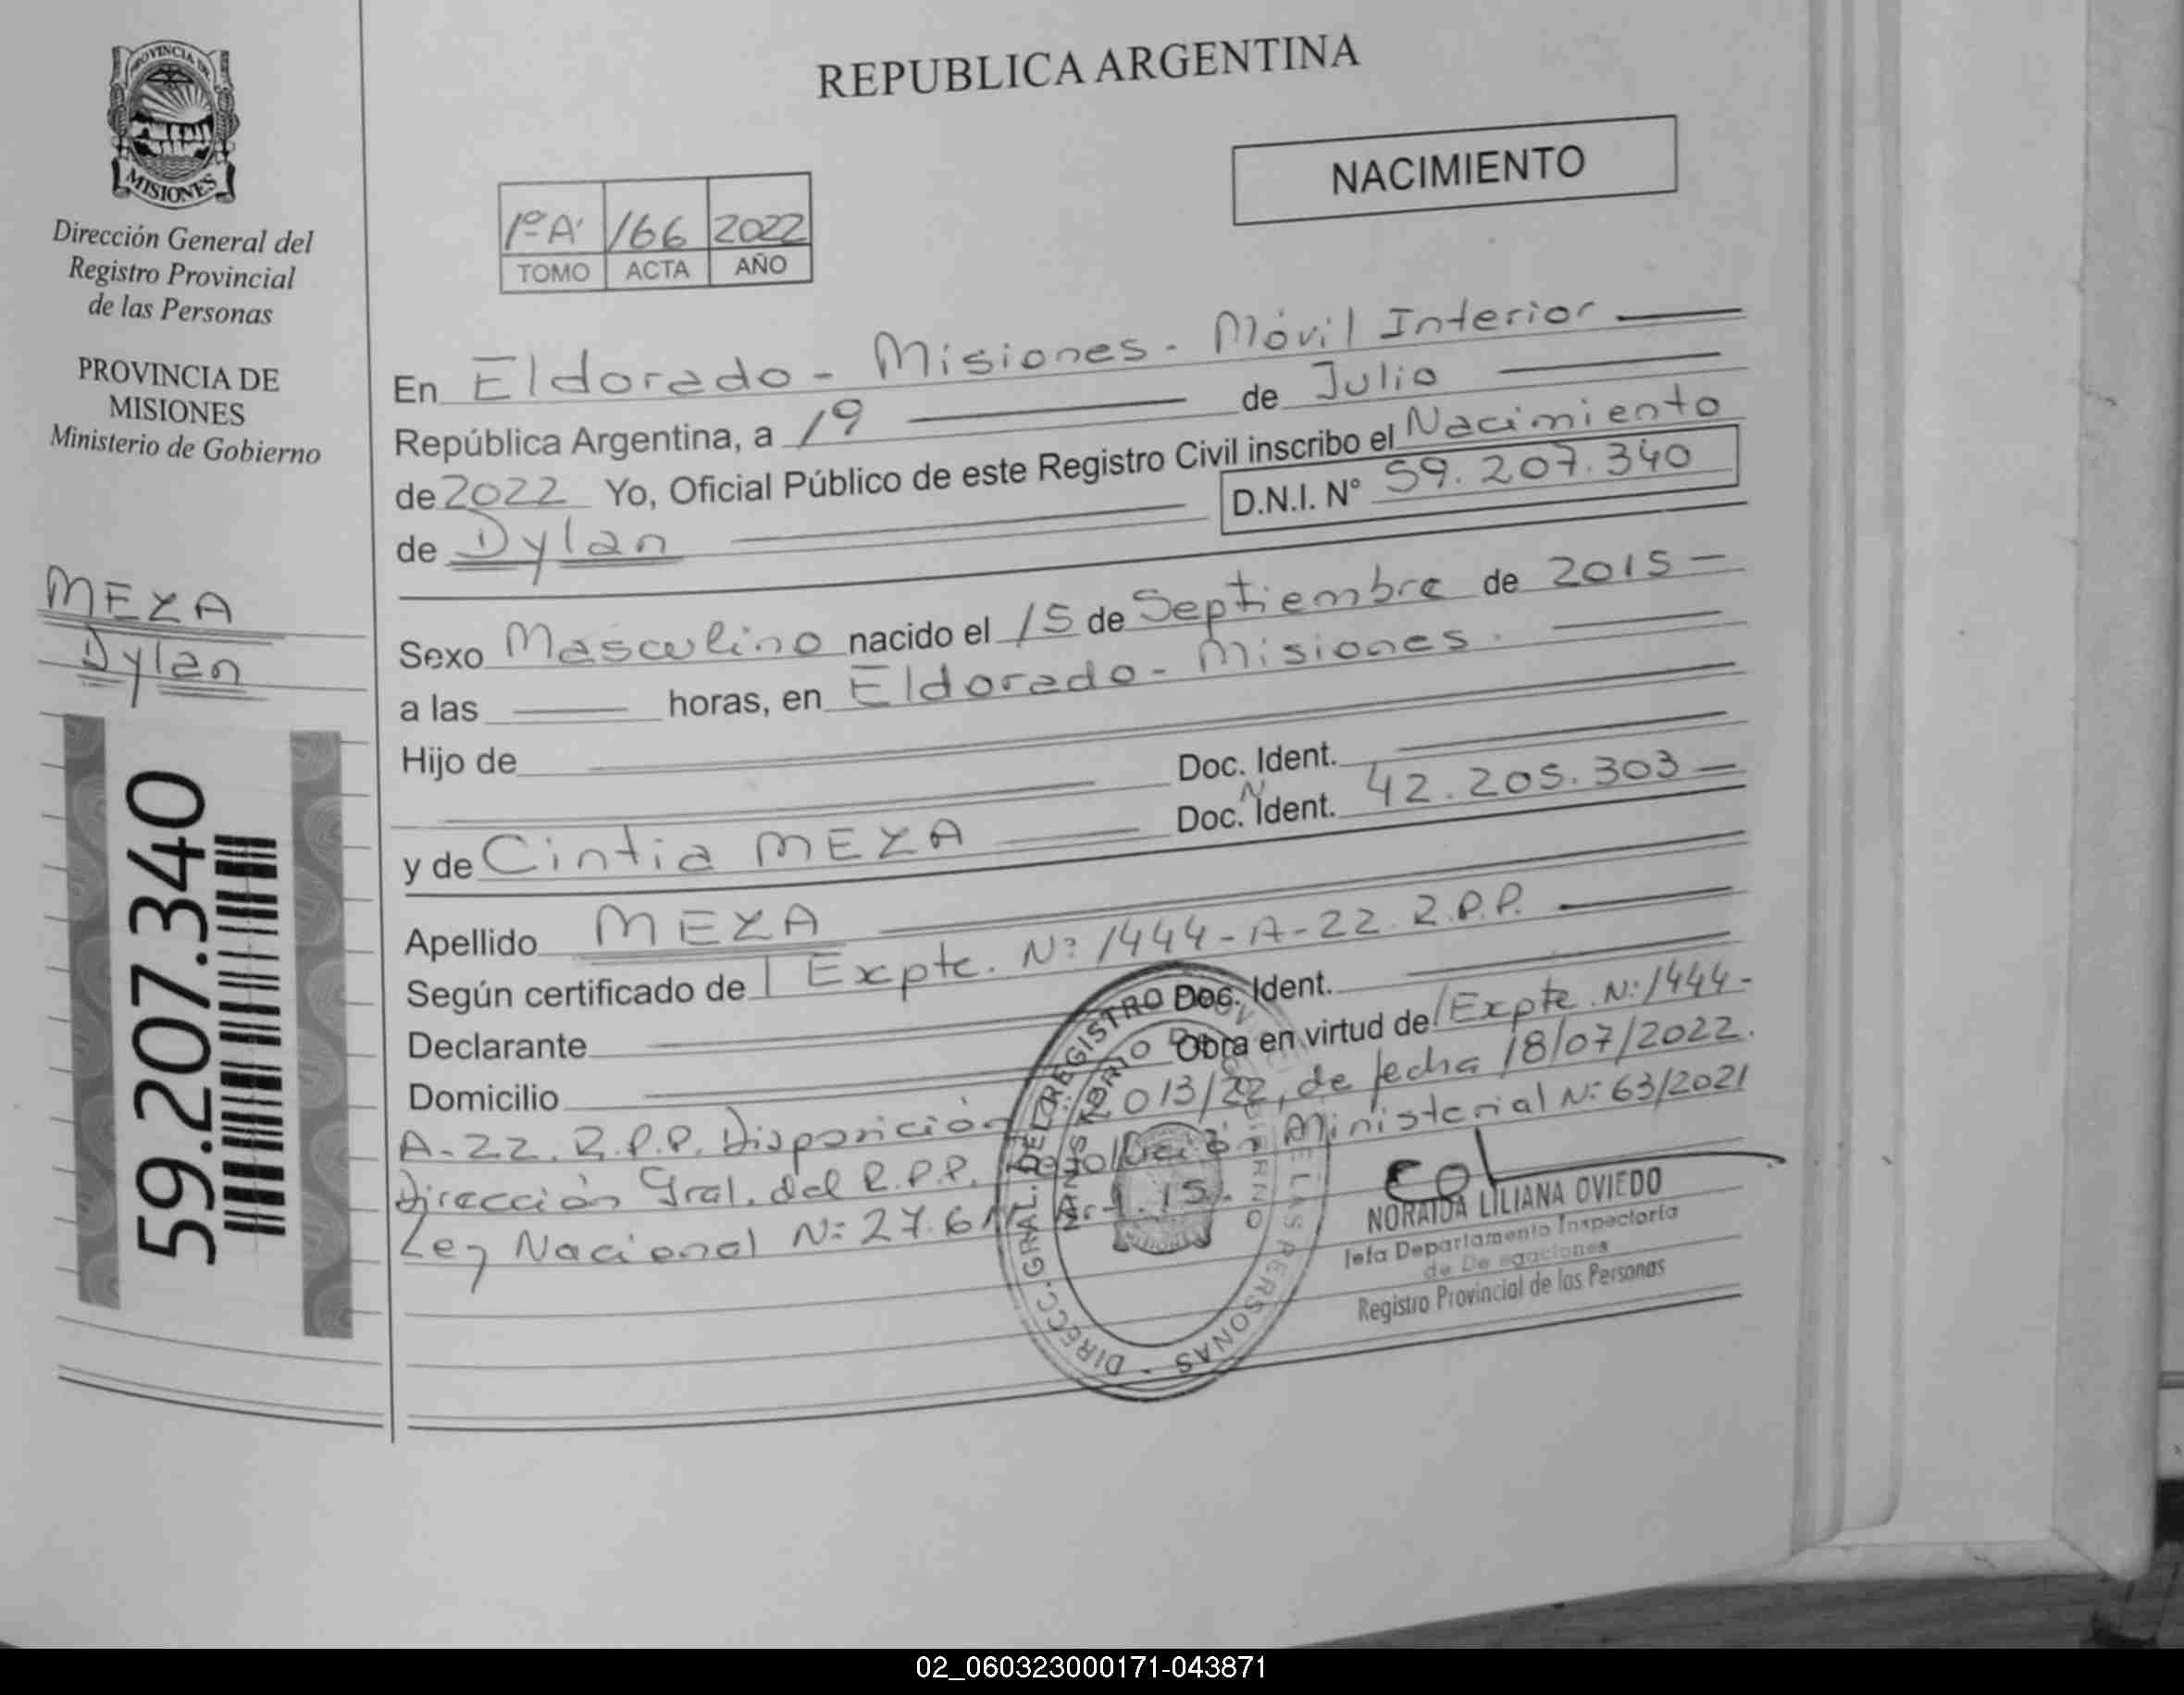 REPUBLICA ARGENTINA
PROVINCIA DE
MISIONES
Dirección General del
Registro Provincial
de las Personas
PROVINCIA DE
MISIONES
Ministerio de Gobierno
MEZA
Dylan
59.207.340
NACIMIENTO
1ºA 166 2022
TOMO ACTA AÑO
En Eldorado - Misiones - Móvil Interior
República Argentina, a 19 de Julio
de 2022 Yo, Oficial Público de este Registro Civil inscribo el Nacimiento
de Dylan D.N.I. N° 59.207.340
Sexo Masculino nacido el 15 de Septiembre de 2015
a las horas, en Eldorado - Misiones.
Hijo de Doc. Ident.
y de Cintia MEZA Doc. N Ident. 42.205.303
Apellido MEZA
Según certificado de Expte. Nº 1444-A-22. R.P.P.
Declarante Doc. Ident.
Domicilio Obra en virtud de Expte. Nº 1444-
A-22. R.P.P. Disposición 2013/22, de fecha 18/07/2022.
Dirección Gral. del R.P.P. Resolución Ministerial Nº 63/2021
Ley Nacional Nº 27.611 Art. 15.
DIRECC. GRAL. DEL REGISTRO PROV. DE LAS PERSONAS
MINISTERIO DE GOBIERNO
NORAIDA LILIANA OVIEDO
Jefa Departamento Inspectoría
de Delegaciones
Registro Provincial de las Personas
02_060323000171-043871